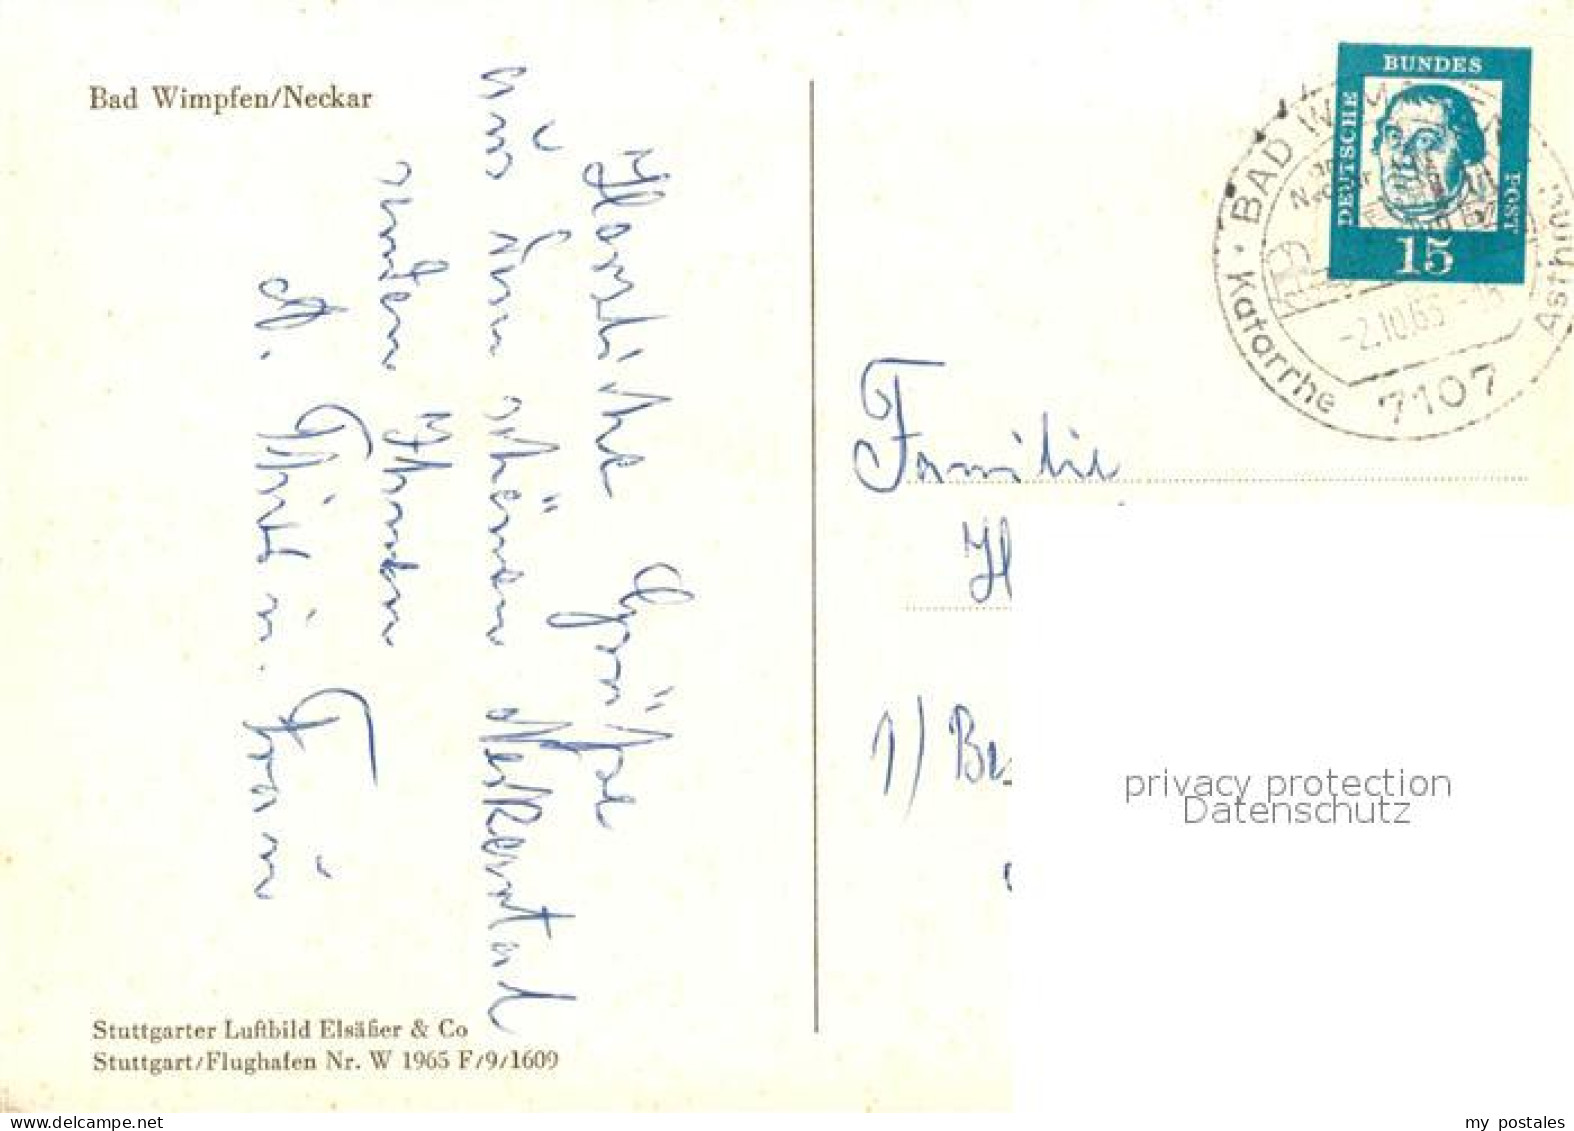 Bad Wimpfen/Neckar
Herzliche Grüße
aus dem schönen Neckartal
senden Ihnen
u. Frau
Stuttgarter Luftbild Elsäßer & Co
Stuttgart/Flughafen Nr. W 1965 F/9/1609
DEUTSCHE BUNDES POST
15
BAD WIMPFEN
am Neckar
-2.10.65
7107
Katarrhe
Asthma
Familie
H
1) Be
privacy protection
Datenschutz
my postales